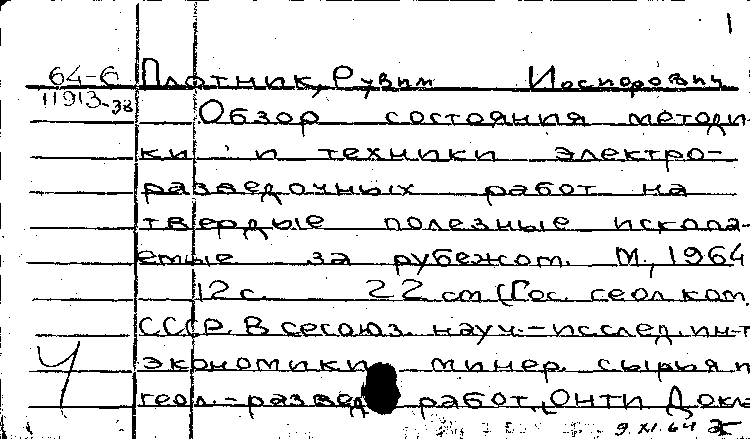 1
64-6 Плотник, Рувим Иоспорович
11913-38
Обзор состояния методи-
ки и техники электро-
разведочных работ на
твердые полезные ископа-
емые за рубежом. М., 1964
12 с. 22 см (Гос. геол. ком.
СССР. Всесоюз. науч.-исслед. ин-т
экономики минер. сырья и
геол.-развед работ. ОНТИ Докл
Ч
9 XI 64